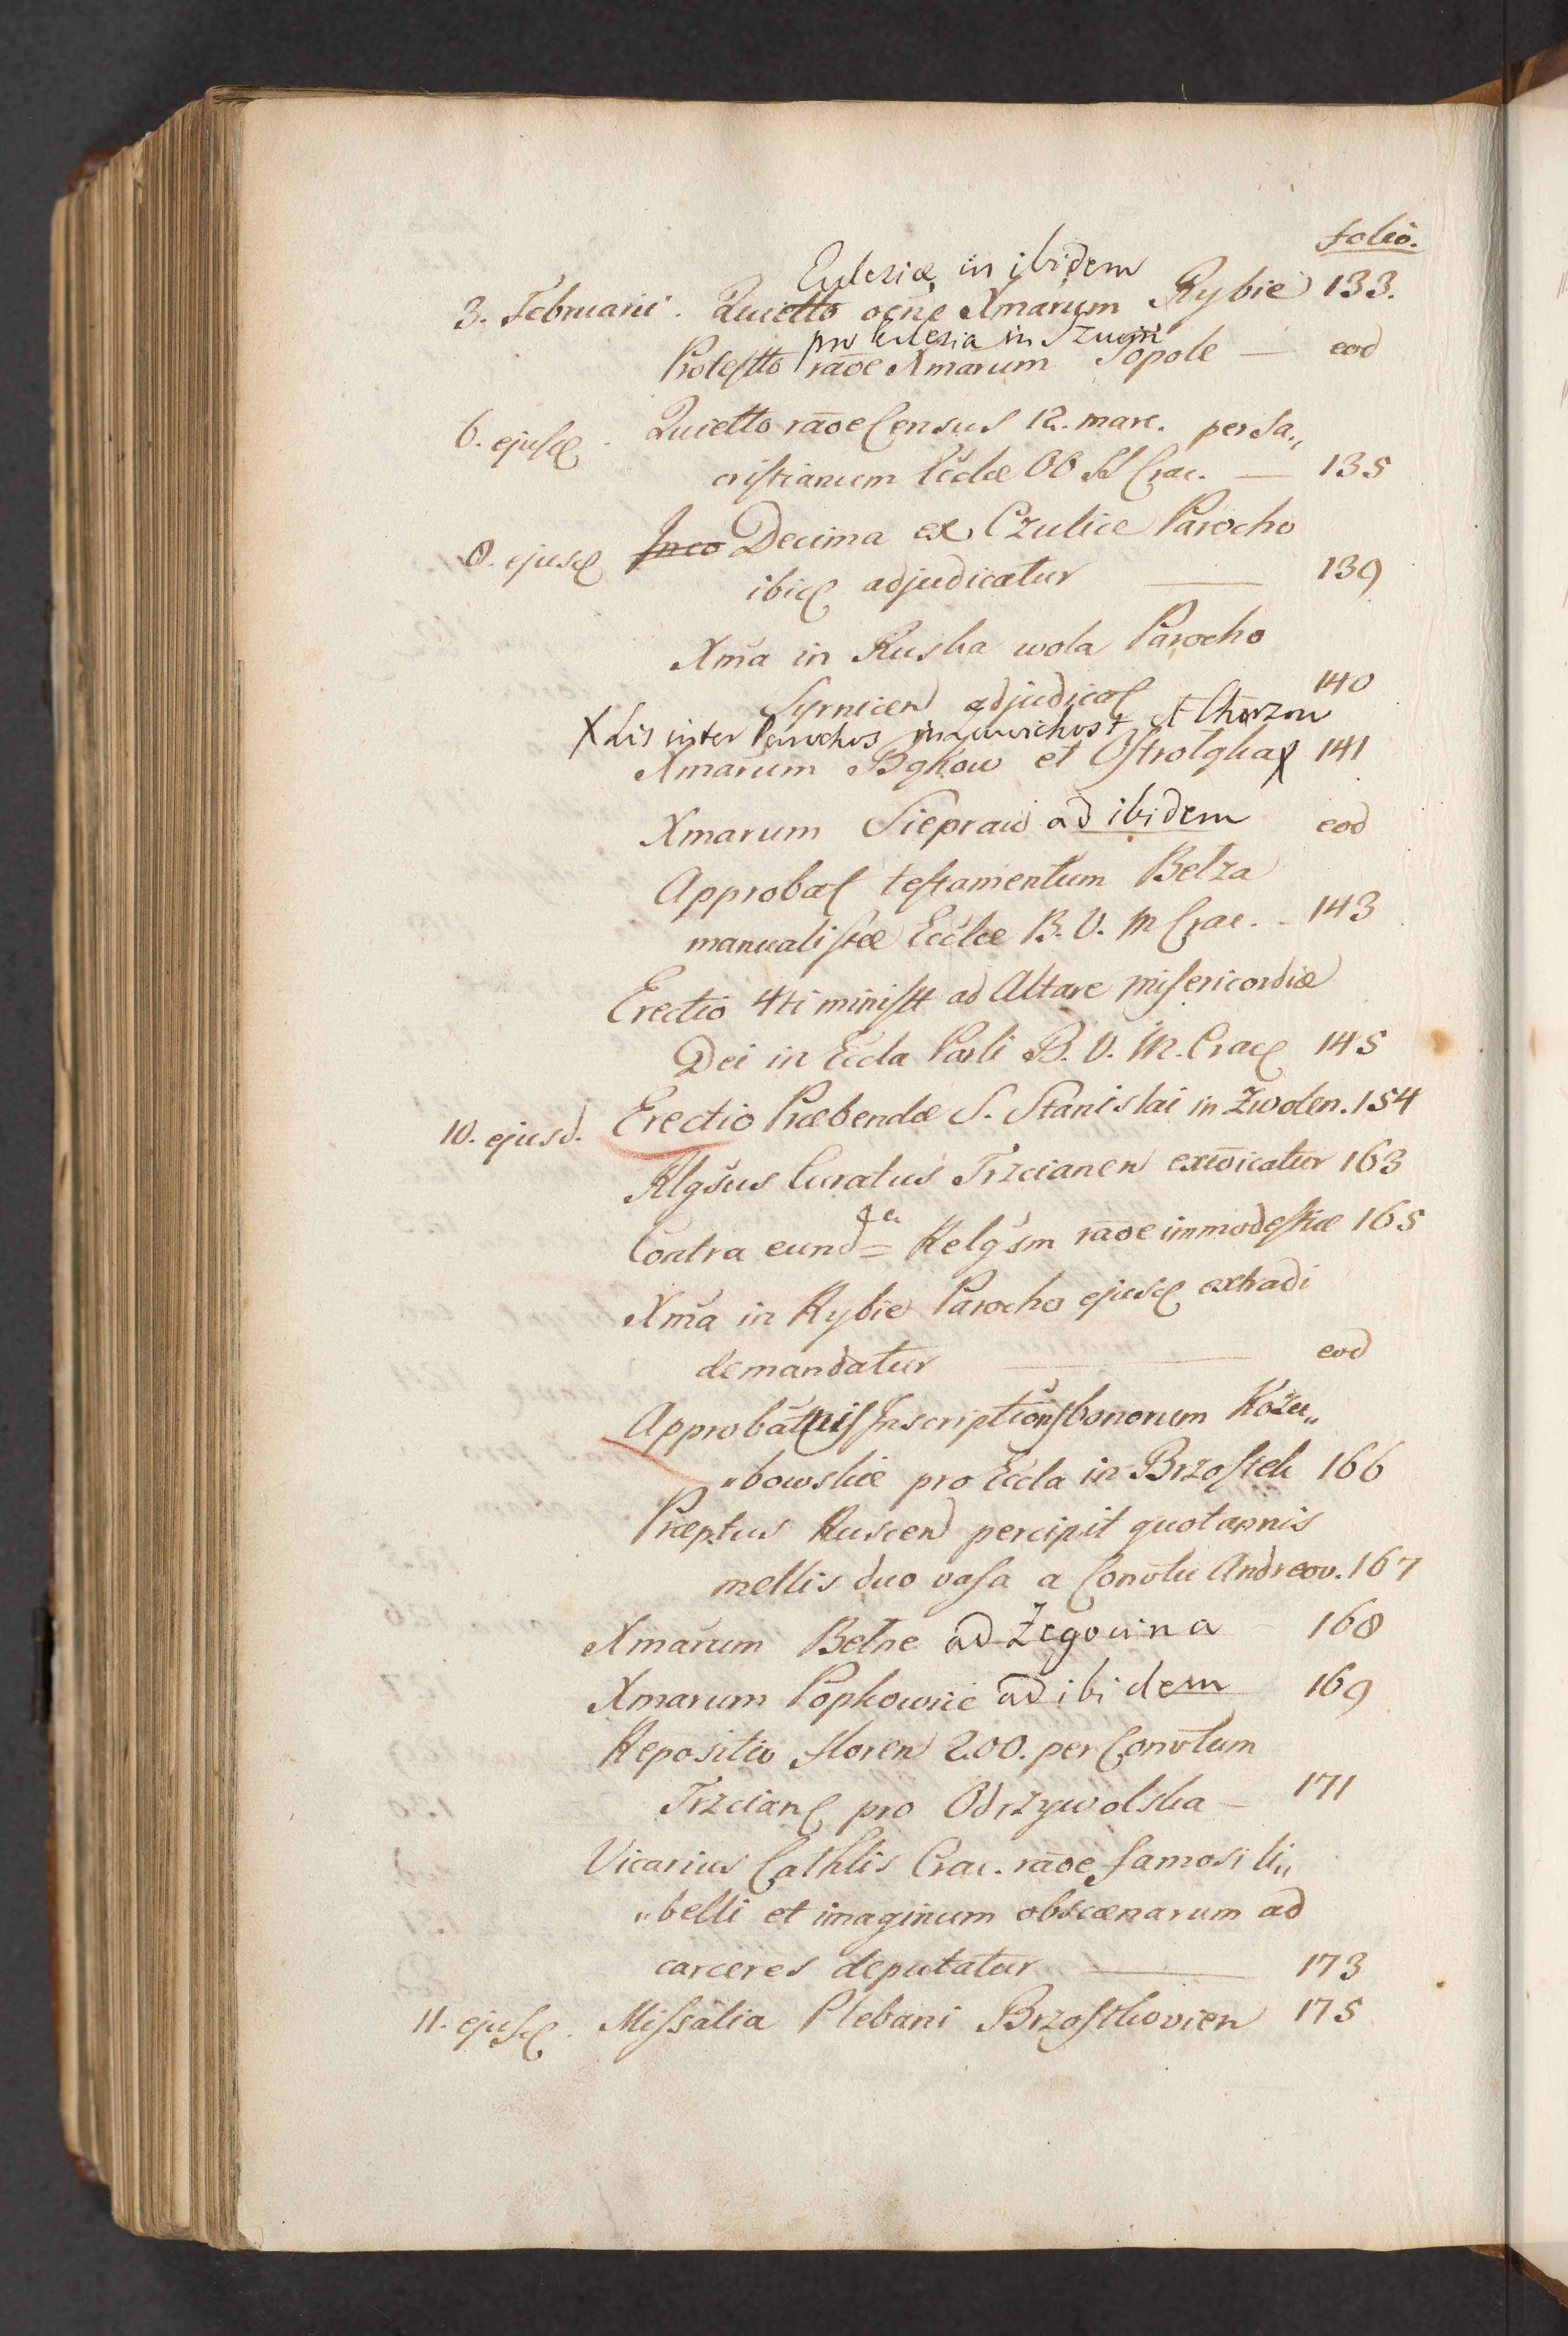 folio.
Ecclesiæ in ibidem
3. Februarii. Quietto oēne Xmarum Rybie 133.
pro Ecclesia in
Protestto raōe Xmarum Topole — eod
6. ejusd. Quietto raōe Census 12. marc. per Sa„
cristianum Ecclæ OO SS Crac. — 135
8. ejusd Inco Decima ex Czulice Parocho
ibid adjudicatur — 139
Xma in Ruska wola Parocho
Syrnicen adjudicat 140
X Lis inter Parochos in Zawichost et Chorzow
Xmarum Bąkow et Ostrołęka X 141
Xmarum Siepraw ad ibidem eod
Approbat testamentum Betza
manualistæ Ecclæ B. V. M Crac. - 143
Erectio 4ti ministt ad Altare misericordiæ
Dei in Eccla Parli B. V. M. Crac 145
10. ejusd. Erectio Præbendæ S. Stanislai in Zwolen. 154
Rlgsus Curatus Trzcianen excoicatur 163
Contra eund= Relgsm raōe immodestiæ 165
Xma in Rybie Parocho ejusd extradi
demandatur — eod
Inscription bonorum Kozu„
„bowskie pro Eccla in Brzostek 166
Præptus Ruscen percipit quotannis
mellis duo vasa a Convtu Andreov. 167
Xmarum Betne ad Zegocina 168
Xmarum Popkowice ad ibidem 169
Repositio floren 200. per Convtum
Trzcian pro Odrzywolska — 171
Vicarius Cathlis Crac. raōe famosi li„
„belli et imaginum obscænarum ad
carceres deputatur — 173
11. ejusd. Missalia Plebani Brzostkovien 175